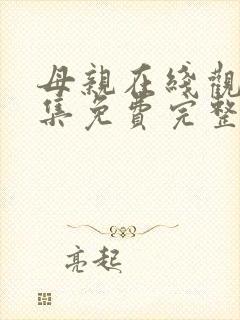 母親在綫觀
集免費完整
亮起